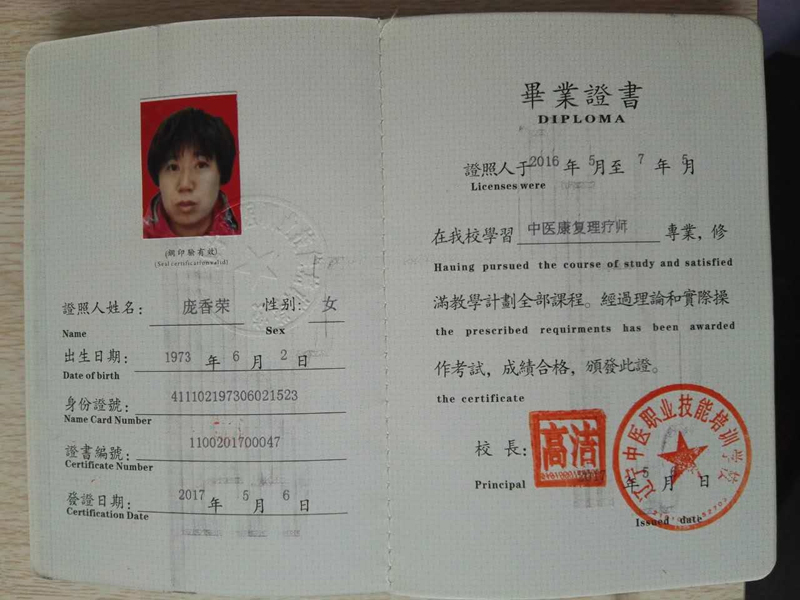 (鋼印驗有效)
(Seal certification valid)
證照人姓名: 庞香荣 性别: 女
Name Sex
出生日期: 1973 年 6 月 2 日
Date of birth
身份證號: 411102197306021523
Name Card Number
證書編號: 1100201700047
Certificate Number
發證日期: 2017 年 5 月 6 日
Certification Date
畢業證書
DIPLOMA
證照人于2016 年 5月至 7 年 5月
Licenses were
在我校學習 中医康复理疗师 專業，修
Hauing pursued the course of study and satisfied
滿教學計劃全部課程。經過理論和實際操
the prescribed requirments has been awarded
作考試，成績合格，頒發此證。
the certificate
校長: 高洁
Principal
2017 年 5 月 日
Issued date
辽宁中医职业技能培训学校